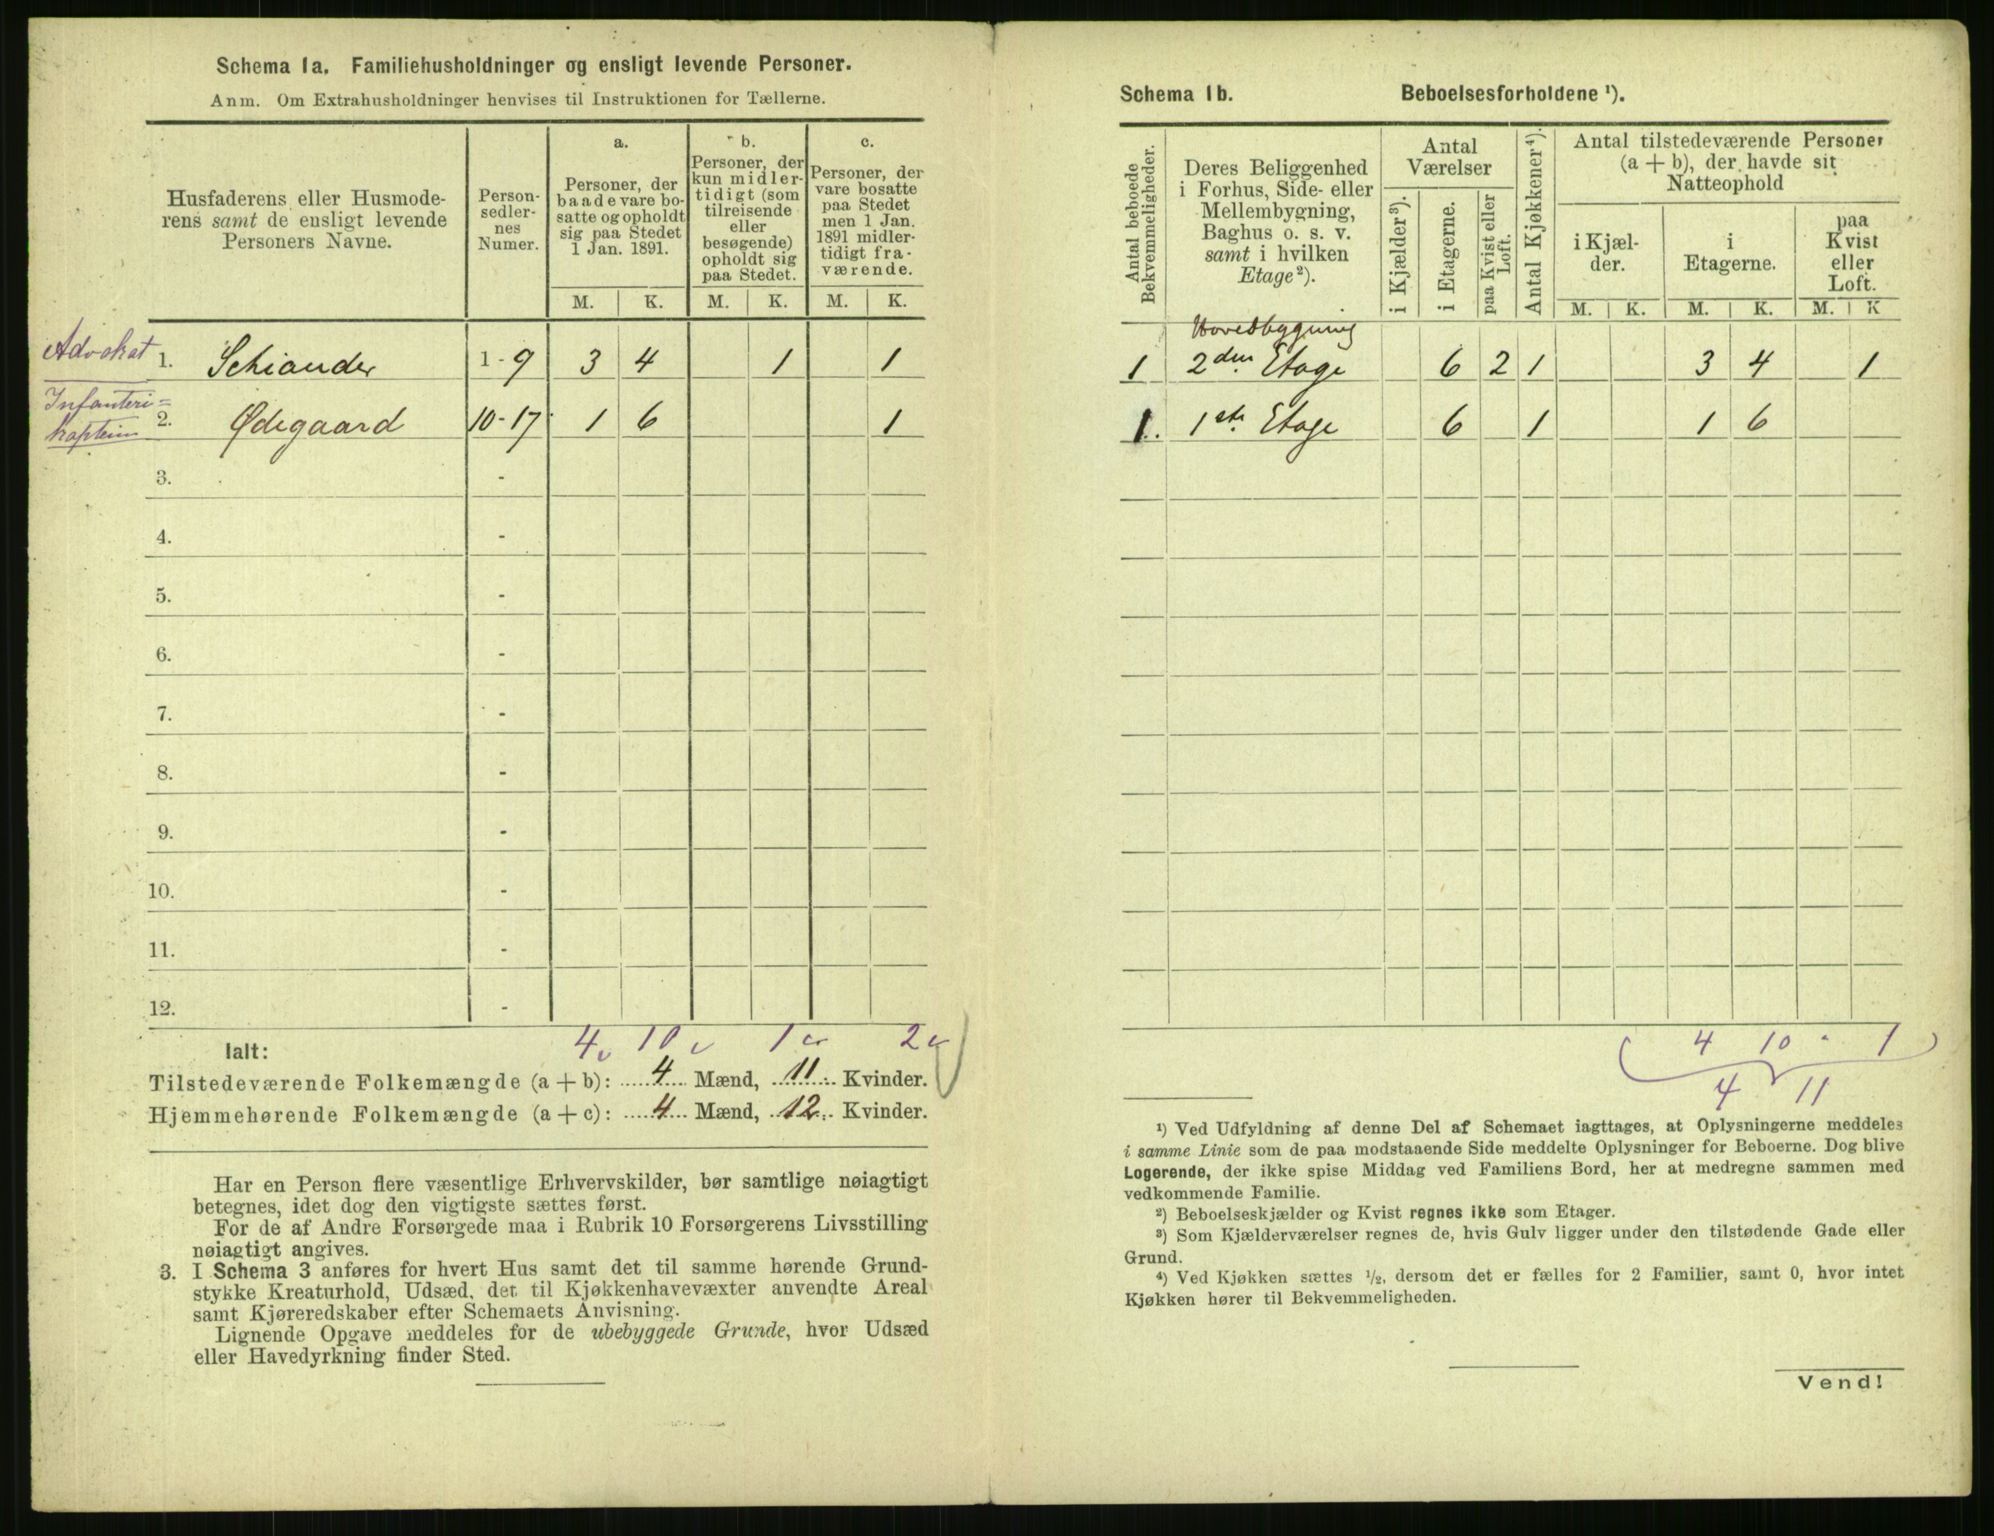 Schema 1a. Familiehusholdninger og ensligt levende Personer.
Anm. Om Extrahusholdninger henvises til Instruktionen for Tællerne.
Husfaderens eller Husmode-
rens samt de ensligt levende
Personers Navne.
Person-
sedler-
nes
Numer.
a.
Personer, der
baade vare bo-
satte og opholdt
sig paa Stedet
1 Jan. 1891.
b.
Personer, der
kun midler-
tidigt (som
tilreisende
eller
besøgende)
opholdt sig
paa Stedet.
c.
Personer, der
vare bosatte
paa Stedet
men 1 Jan.
1891 midler-
tidigt fra-
værende.
M. K. M. K. M. K.
Advokat 1. Schiander 1-9 3 4 1 1
Infanteri=
kaptein 2. Ødegaard 10-17 1 6 1
3. -
4. -
5. -
6. -
7. -
8. -
9. -
10. -
11. -
12. -
Ialt: 4 10 1 2
Tilstedeværende Folkemængde (a + b): 4 Mænd, 11 Kvinder.
Hjemmehørende Folkemængde (a + c): 4 Mænd, 12 Kvinder.
Har en Person flere væsentlige Erhvervskilder, bør samtlige nøiagtigt
betegnes, idet dog den vigtigste sættes først.
For de af Andre Forsørgede maa i Rubrik 10 Forsørgerens Livsstilling
nøiagtigt angives.
3. I Schema 3 anføres for hvert Hus samt det til samme hørende Grund-
stykke Kreaturhold, Udsæd, det til Kjøkkenhavevæxter anvendte Areal
samt Kjøreredskaber efter Schemaets Anvisning.
Lignende Opgave meddeles for de ubebyggede Grunde, hvor Udsæd
eller Havedyrkning finder Sted.
Schema 1b. Beboelsesforholdene ¹).
Antal beboede
Bekvemmeligheder.
Deres Beliggenhed
i Forhus, Side- eller
Mellembygning,
Baghus o. s. v.
samt i hvilken
Etage ²).
Antal
Værelser
i Kjælder ³).
i Etagerne.
paa Kvist eller
Loft.
Antal Kjøkkener ⁴).
Antal tilstedeværende Personer
(a + b), der havde sit
Natteophold
i Kjæl-
der.
i
Etagerne.
paa
Kvist
eller
Loft.
M. K. M. K. M. K
Hovedbygning
1 2den Etage 6 2 1 3 4 1
1. 1ste Etage 6 1 1 6
4 10 1
4 11
¹) Ved Udfyldning af denne Del af Schemaet iagttages, at Oplysningerne meddeles
i samme Linie som de paa modstaaende Side meddelte Oplysninger for Beboerne. Dog blive
Logerende, der ikke spise Middag ved Familiens Bord, her at medregne sammen med
vedkommende Familie.
²) Beboelseskjælder og Kvist regnes ikke som Etager.
³) Som Kjælderværelser regnes de, hvis Gulv ligger under den tilstødende Gade eller
Grund.
⁴) Ved Kjøkken sættes ½, dersom det er fælles for 2 Familier, samt 0, hvor intet
Kjøkken hører til Bekvemmeligheden.
Vend!